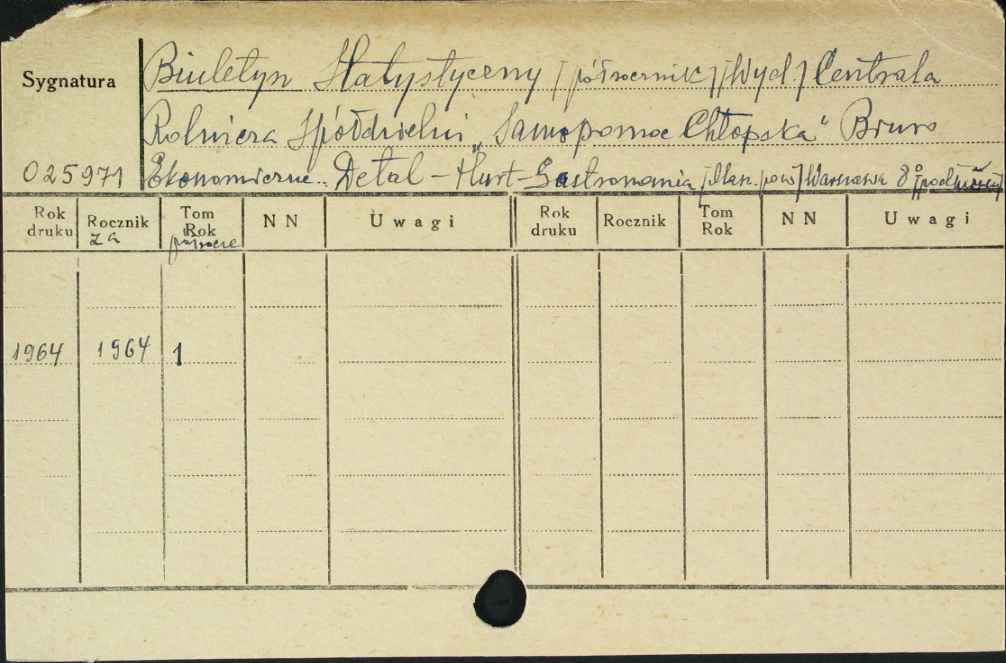 Sygnatura
Biuletyn Statystyczny /półrocznik/ /Wyd./ Centrala
Rolnicza Spółdzielni „Samopomoc Chłopska" Biuro
025971
Ekonomiczne. Detal - Hurt - Gastronomia /Masz. pow/ Warszawa 8°
Rok druku Rocznik za Tom Rok półrocze NN Uwagi Rok druku Rocznik Tom Rok NN Uwagi
1964 1964 1